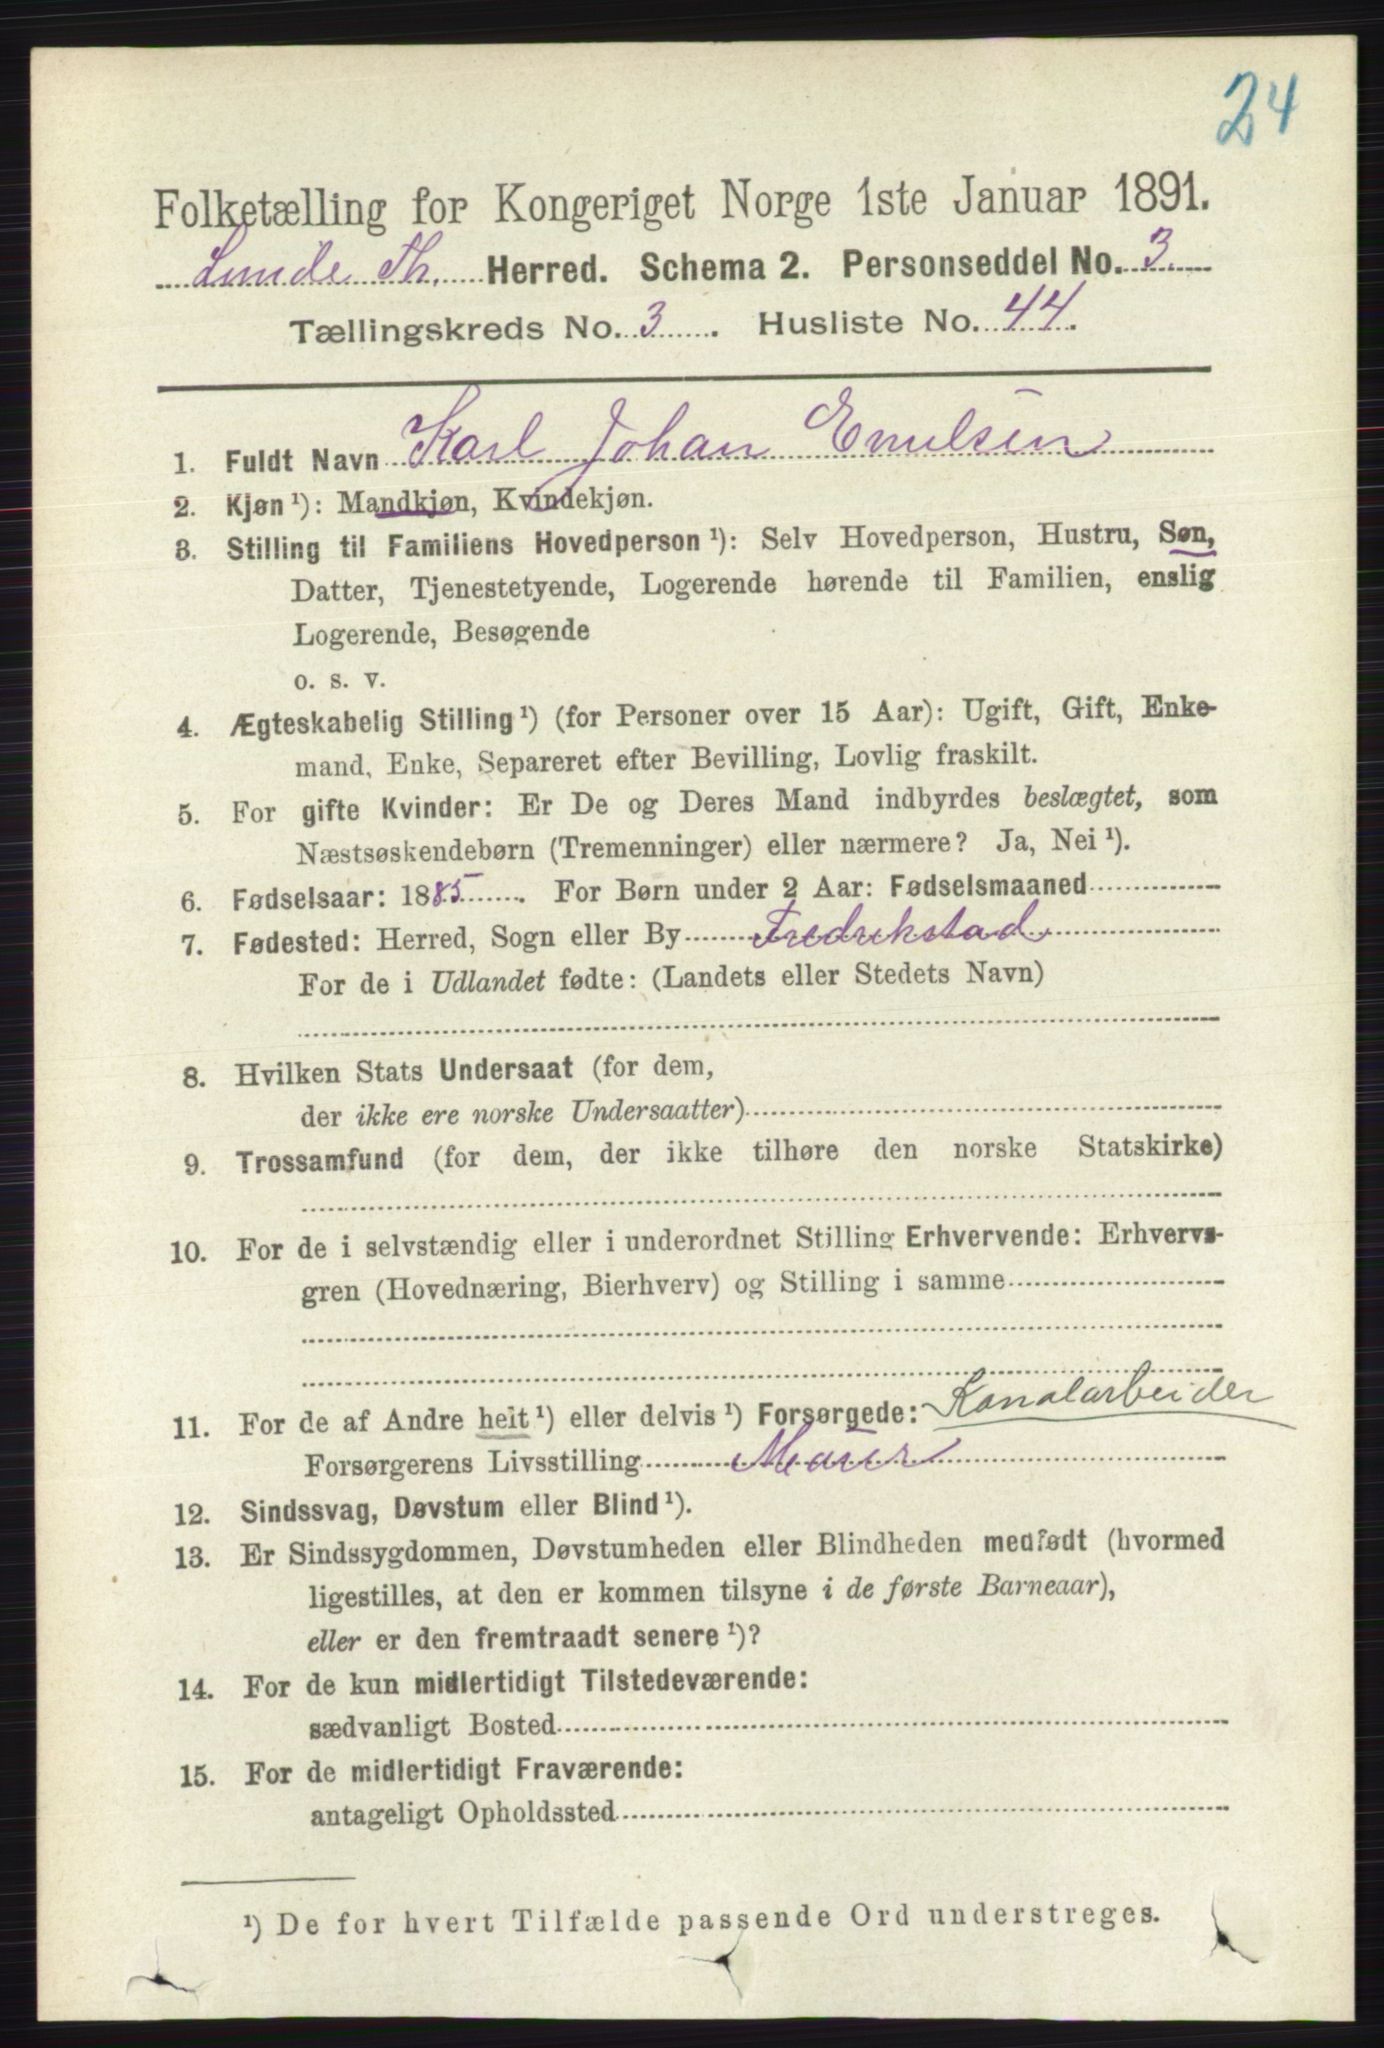 24
Folketælling for Kongeriget Norge 1ste Januar 1891.
Lunde Th. Herred. Schema 2. Personseddel No. 3.
Tællingskreds No. 3. Husliste No. 44.
1. Fuldt Navn Karl Johan Emilsen
2. Kjøn ¹): Mandkjøn, Kvindekjøn.
3. Stilling til Familiens Hovedperson ¹): Selv Hovedperson, Hustru, Søn,
Datter, Tjenestetyende, Logerende hørende til Familien, enslig
Logerende, Besøgende
o. s. v.
4. Ægteskabelig Stilling ¹) (for Personer over 15 Aar): Ugift, Gift, Enke-
mand, Enke, Separeret efter Bevilling, Lovlig fraskilt.
5. For gifte Kvinder: Er De og Deres Mand indbyrdes beslægtet, som
Næstsøskendebørn (Tremenninger) eller nærmere? Ja, Nei ¹).
6. Fødselsaar: 1885. For Børn under 2 Aar: Fødselsmaaned
7. Fødested: Herred, Sogn eller By Fredrikstad
For de i Udlandet fødte: (Landets eller Stedets Navn)
8. Hvilken Stats Undersaat (for dem,
der ikke ere norske Undersaatter)
9. Trossamfund (for dem, der ikke tilhøre den norske Statskirke)
10. For de i selvstændig eller i underordnet Stilling Erhvervende: Erhvervs-
gren (Hovednæring, Bierhverv) og Stilling i samme
11. For de af Andre helt ¹) eller delvis ¹) Forsørgede: Kanalarbeider
Forsørgerens Livsstilling Murer
12. Sindssvag, Døvstum eller Blind ¹).
13. Er Sindssygdommen, Døvstumheden eller Blindheden medfødt (hvormed
ligestilles, at den er kommen tilsyne i de første Barneaar),
eller er den fremtraadt senere ¹)?
14. For de kun midlertidigt Tilstedeværende:
sædvanligt Bosted
15. For de midlertidigt Fraværende:
antageligt Opholdssted
¹) De for hvert Tilfælde passende Ord understreges.